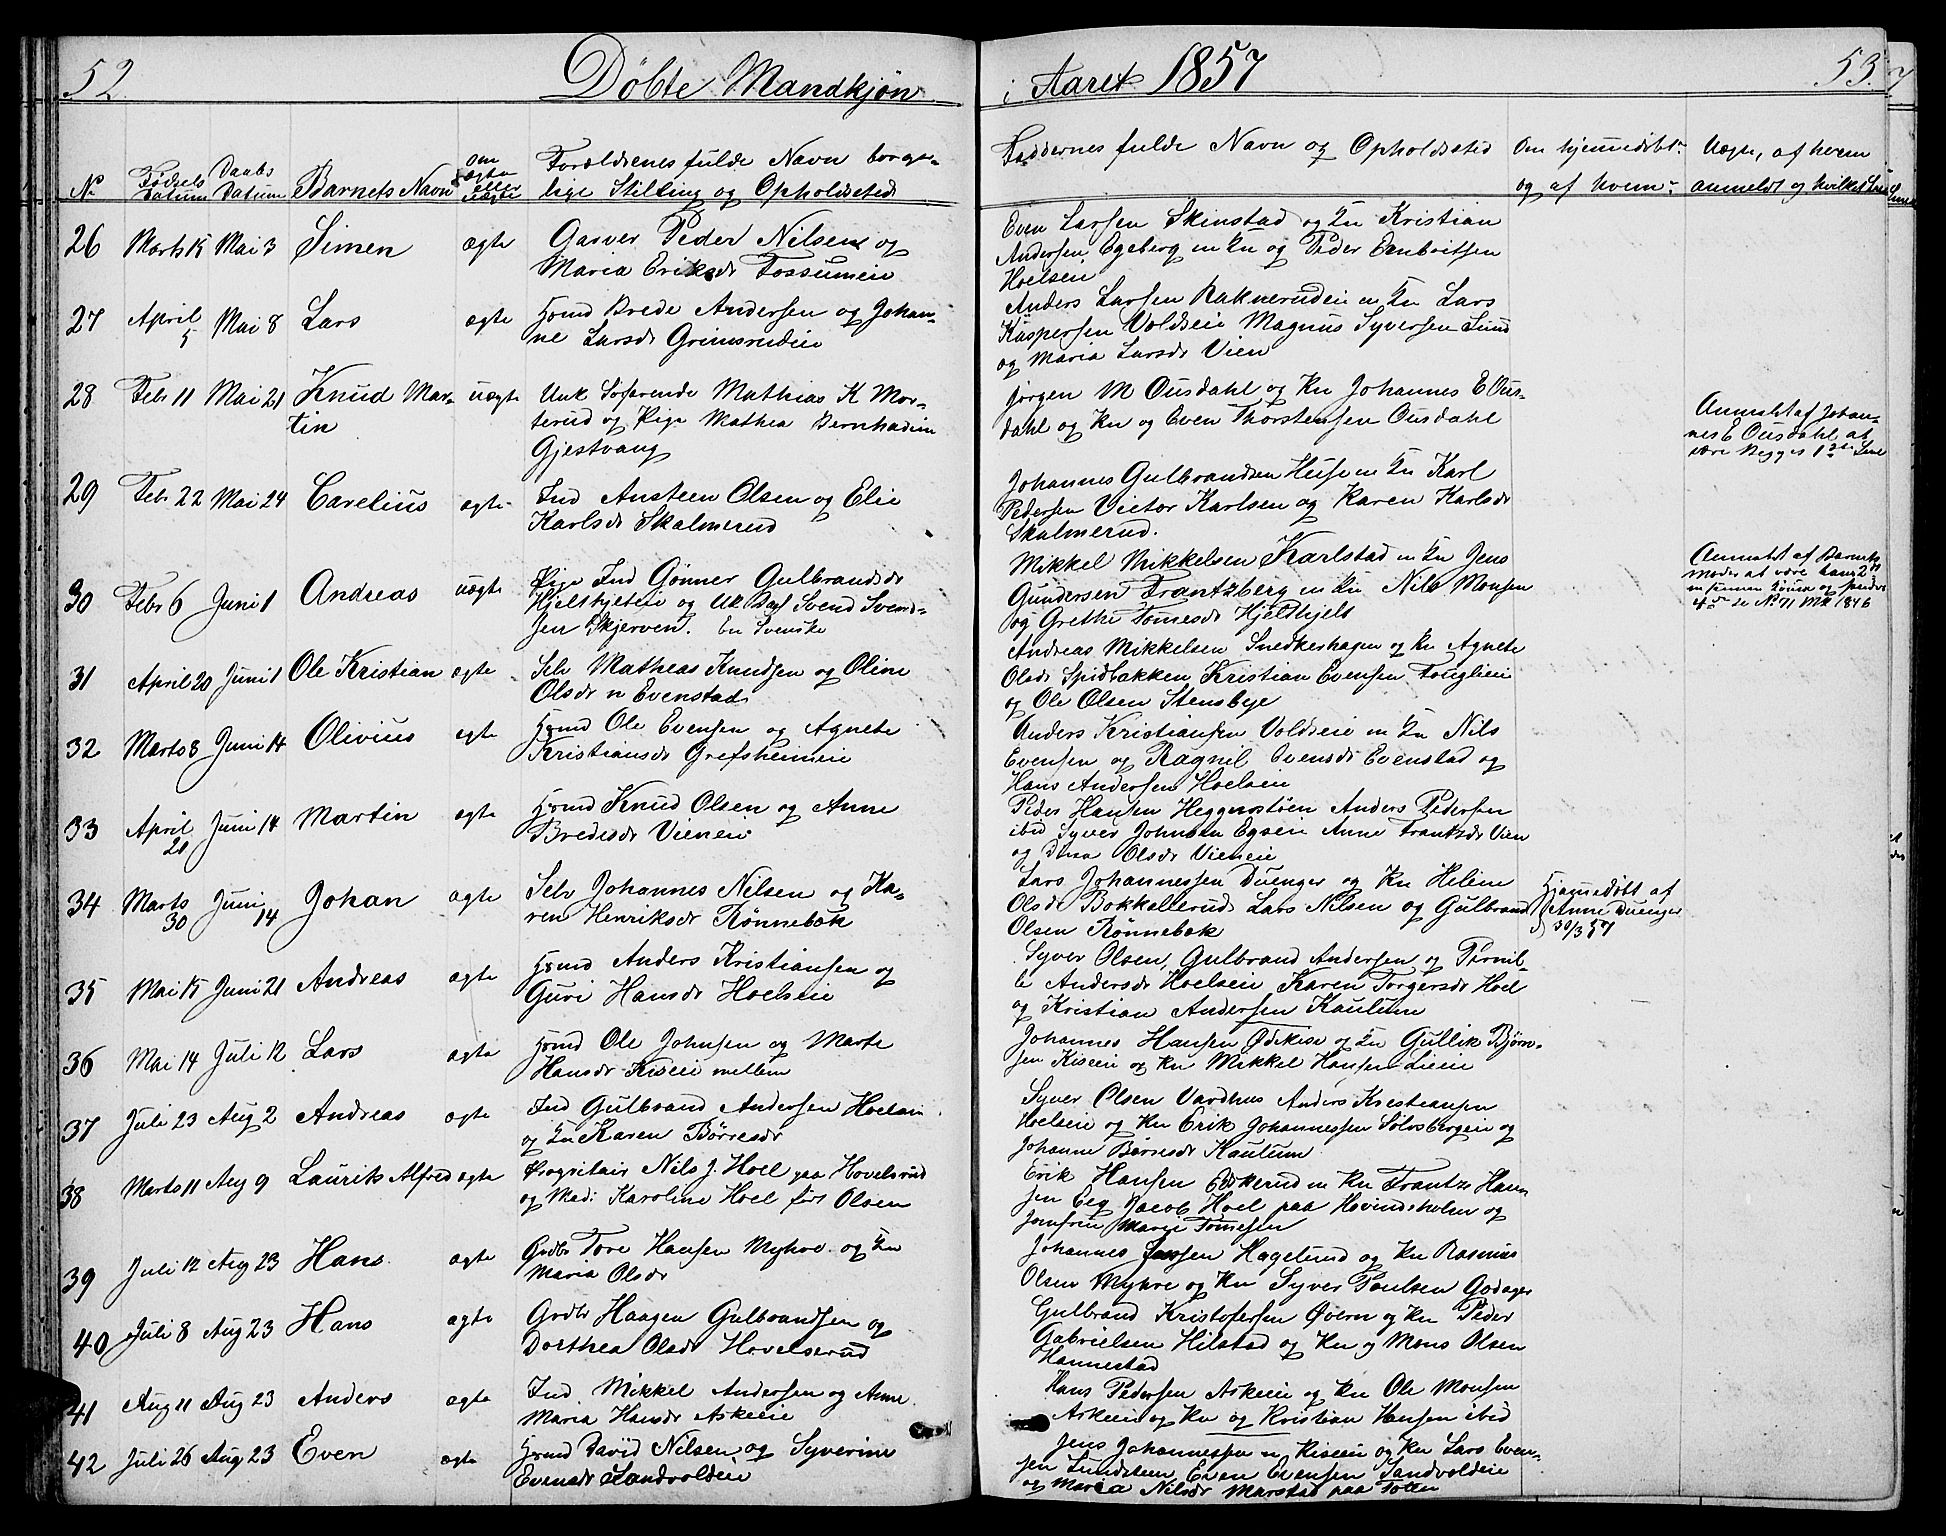 52 Döbte Mandkjøn
i Aaret 1857 53.
No Födsels Datum Daabs Datum Barnets Navn om ægte eller uægte Forældrenes fulde Navn borger-
lige Stilling og Opholdssted
Faddernes fulde Navn og Opholdssted Om hjemmedöbt Uægte, af hvem
og af hvem anmeldt og hvilket
26 Marts 15 Mai 3 Simen ægte Garver Peder Nilsen og
Maria Eriksdr Fossumeie
Even Larsen Skinstad og Kn Kristian
Andersen Egeberg m Kn og Peder Embrittsen
Hoelseie
27 April 5 Mai 8 Lars ægte Hmd Brede Andersen og Johan-
ne Larsdr Grimsrudeie
Anders Larsen Raknerudeie m Kn Lars
Kaspersen Voldseie Magnus Syversen Lund
og Maria Larsdr Vien
28 Febr 11 Mai 21 Knud Mar-
tin uægte Unk Söfarende Mathias K Mor-
terud og Pige Mathea Bernhadine
Gjestvang
Jörgen M Ousdahl og Kn Johannes E Ous-
dahl og Kn og Even Thorstensen Ousdahl
Anmeldt af Johan-
nes E Ousdahl at
være begges 1ste
29 Febr 22 Mai 24 Carelius ægte Ind Austeen Olsen og Elie
Karlsdr Skalmerud
Johannes Gulbrandsen Huse m Kn Karl
Pedersen Victor Karlsen og Karen Karlsdr
Skalmerud.
30 Febr 6 Juni 1 Andreas uægte Pige Ind Gönner Gulbrandsdr
Hjelthjelteie og Uk Svend Svend-
sen Skjerven. En Svenske
Mikkel Mikkelsen Karlstad m Kn Jens
Gundersen Frantzberg m Kn Nils Monsen
og Grethe Tomesdr Hjelthjelt
Anmeldt af Barnets
Moder at være hans 2det
No 71 Mk 1846
31 April 20 Juni 1 Ole Kristian ægte Selv Mathias Knudsen og Oline
Olsdr n Evenstad
Andreas Mikkelsen Snedkerhagen og Kn Agnete
Olsdr Spidbakken Kristian Evensen Fouglieie
og Ole Olsen Stensbye
32 Marts 8 Juni 14 Olivius ægte Hmd Ole Evensen og Agnete
Kristiansdr Grefsheimeie
Anders Kristiansen Voldseie m Kn Nils
Evensen og Ragnil Evensdr Evenstad og
Hans Andersen Hoelseie
33 April 21 Juni 14 Martin ægte Hmd Knud Olsen og Anne
Bredesdr Vieneie
Peder Hansen Heggnstöen Anders Pedersen
ibid Syver Johnsen Egseie Anne Frantzdr Vien
og Olsdr Vieneie
34 Marts 30 Juni 14 Johan ægte Selv Johannes Nilsen og Ka-
ren Henriksdr Rönnebæk
Lars Johannessen Duenger og Kn Helene
Olsdr Bokkallerud Lars Nilsen og Gulbrand
Olsen Rönnebæk
Hjemmedöbt af
Anne Duenger
30/3 57
35 Mai 15 Juni 21 Andreas ægte Hmd Anders Kristiansen og
Guri Hansdr Hoelseie
Syver Olsen, Gulbrand Andersen og Pernil-
le Andersdr Hoelseie Karen Torgersdr Hoel
og Kristian Andersen Kaulum
36 Mai 14 Juli 12 Lars ægte Hmd Ole Johnsen og Marte
Hansdr Kiseie mellem
Johannes Hansen Ödekise og Kn Gullik Björn-
sen Kiseie og Kn Mikkel Hansen Lieie
37 Juli 23 Aug 2 Andreas ægte Ind Gulbrand Andersen Hoelseie
og Kn Karen Börresdr
Syver Olsen Vardhus Anders Kristiansen
Hoelseie og Kn Erik Johannessen Solvsbergeie og
Johanne Börresdr Kaulum
38 Marts 11 Aug 9 Laurits Alfred ægte Propritair Nils J. Hoel paa Hovelsrud
og Mad: Karoline Hoel föt Olsen
Erik Hansen Eskerud m Kn Frantz Han-
sen Eeg Jacob Hoel paa Hovindsholm og
Jomfru Marie Tomesen
39 Juli 12 Aug 23 Hans ægte Grdbr Tore Hansen Myhre og Kn
Maria Olsdr
Johannes Jensen Hagelund og Kn Rasmus
Olsen Myhre og Kn Syver Poulsen Godager
40 Juli 8 Aug 23 Hans ægte Grdbr Haagen Gulbrandsen og
Dorthea Olsdr Hovelsrud
Gulbrand Kristofersen Övern og Kn Peder
Gabrielsen Hilstad og Kn og Mons Olsen
Hannestad
41 Aug 11 Aug 23 Anders ægte Ind Mikkel Andersen og Anne
Maria Hansdr Askeeie
Hans Pedersen Askeeie og Kn Ole Monsen
Askeeie og Kn og Kristian Hansen ibid
42 Juli 26 Aug 23 Even ægte Hmd David Nilsen og Syverine
Evensdr Sandvoldeie
Jens Johannessen n Kiseeie og Kn Lars Even-
sen Lundsteen Even Evensen Sandvoldeie
og Maria Nilsdr Marstad paa Toten